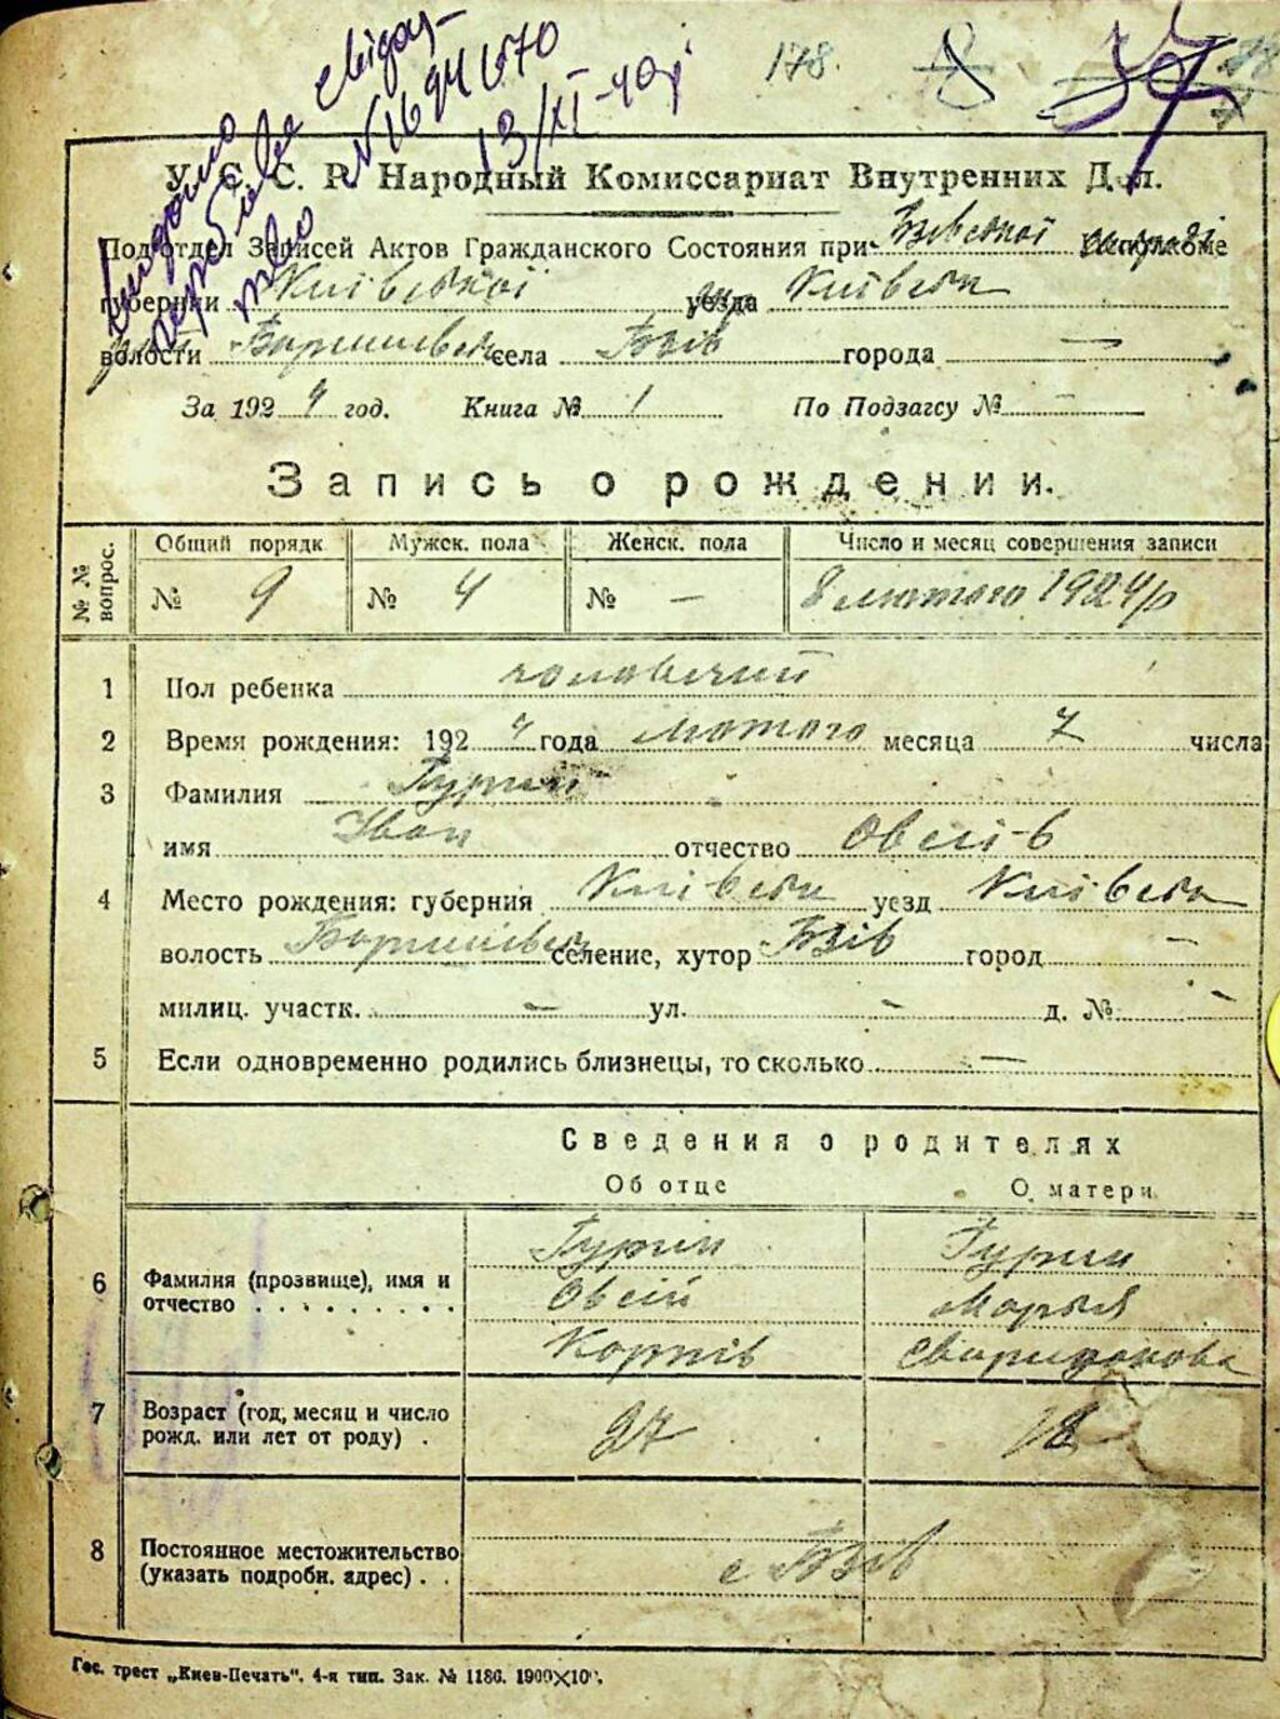 Видано свідоц-
тво
№ 1694670
13/XI-40р
178.
37
У. С. С. Р. Народный Комиссариат Внутренних Дел.
Подотдел Записей Актов Гражданского Состояния при Бзівської сельради
губернии Київської уезда Київськ
волости Баришівськ села Бзів города —
За 1924 год. Книга № 1 По Подзагсу № —
Запись о рождении.
№ № вопрос.
Общий порядк Мужск. пола Женск. пола Число и месяц совершения записи
№ 9 № 4 № — 8 лютого 1924 р
1 Пол ребенка чоловічий
2 Время рождения: 1924 года лютого месяца 7 числа
3 Фамилия Гурин
имя Иван отчество Овсіїв
4 Место рождения: губерния Київськ уезд Київськ
волость Баришівськ селение, хутор Бзів город —
милиц. участк. — ул. — д. №. —
5 Если одновременно родились близнецы, то сколько —
Сведения о родителях
Об отце О матери
Гурин Гурин
6 Фамилия (прозвище), имя и Овсій Марья
отчество Корпів Свиридонова
7 Возраст (год, месяц и число
рожд. или лет от роду) . 27 18
8 Постоянное местожительство
(указать подробн. адрес) . . с Бзів
Гос. трест „Киев-Печать“. 4-я тип. Зак. № 1186. 1900×10